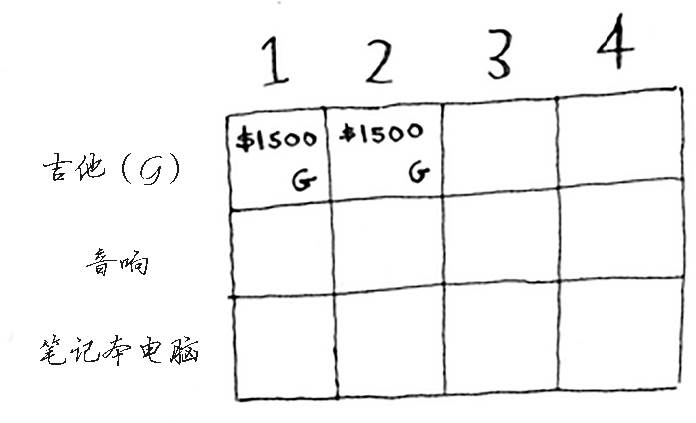 1 2 3 4
吉他(G) $1500 G $1500 G
音响
笔记本电脑